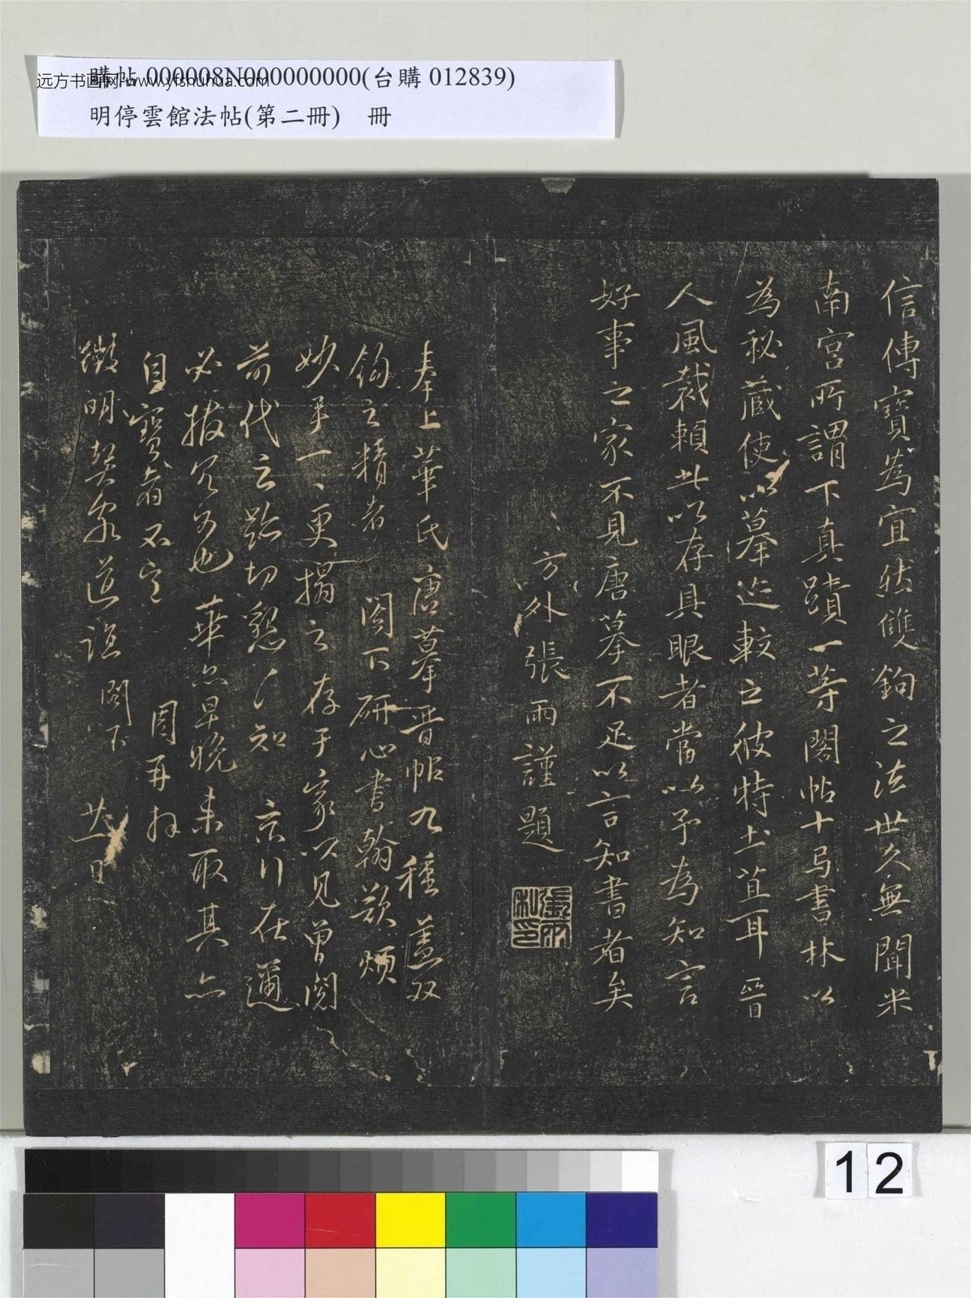 購帖 000008N000000000(台購 012839)
远方书画网 www.yfshuhua.com
明停雲館法帖(第二冊) 冊
信傳寶為宜然雙鉤之法世久無聞米
南宮所謂下真蹟一等閣帖十馬書林以
為秘藏使以摹迹較之彼特土苴耳晉
人風裁賴此以存具眼者當以予為知言
好事之家不見唐摹不足以言知書者矣
方外張雨謹題
奉上華氏唐摹晉帖九種蓋双
鉤之精者 閣下研心書翰欲煩
妙手一一更搨之存于家以見曾閱
前代之跡切懇〻知 京行在邇
必撥冗為也 華亦早晚来取其
自寶翁不宣 周再拜
徵明契家道誼閣下 廿 日
12